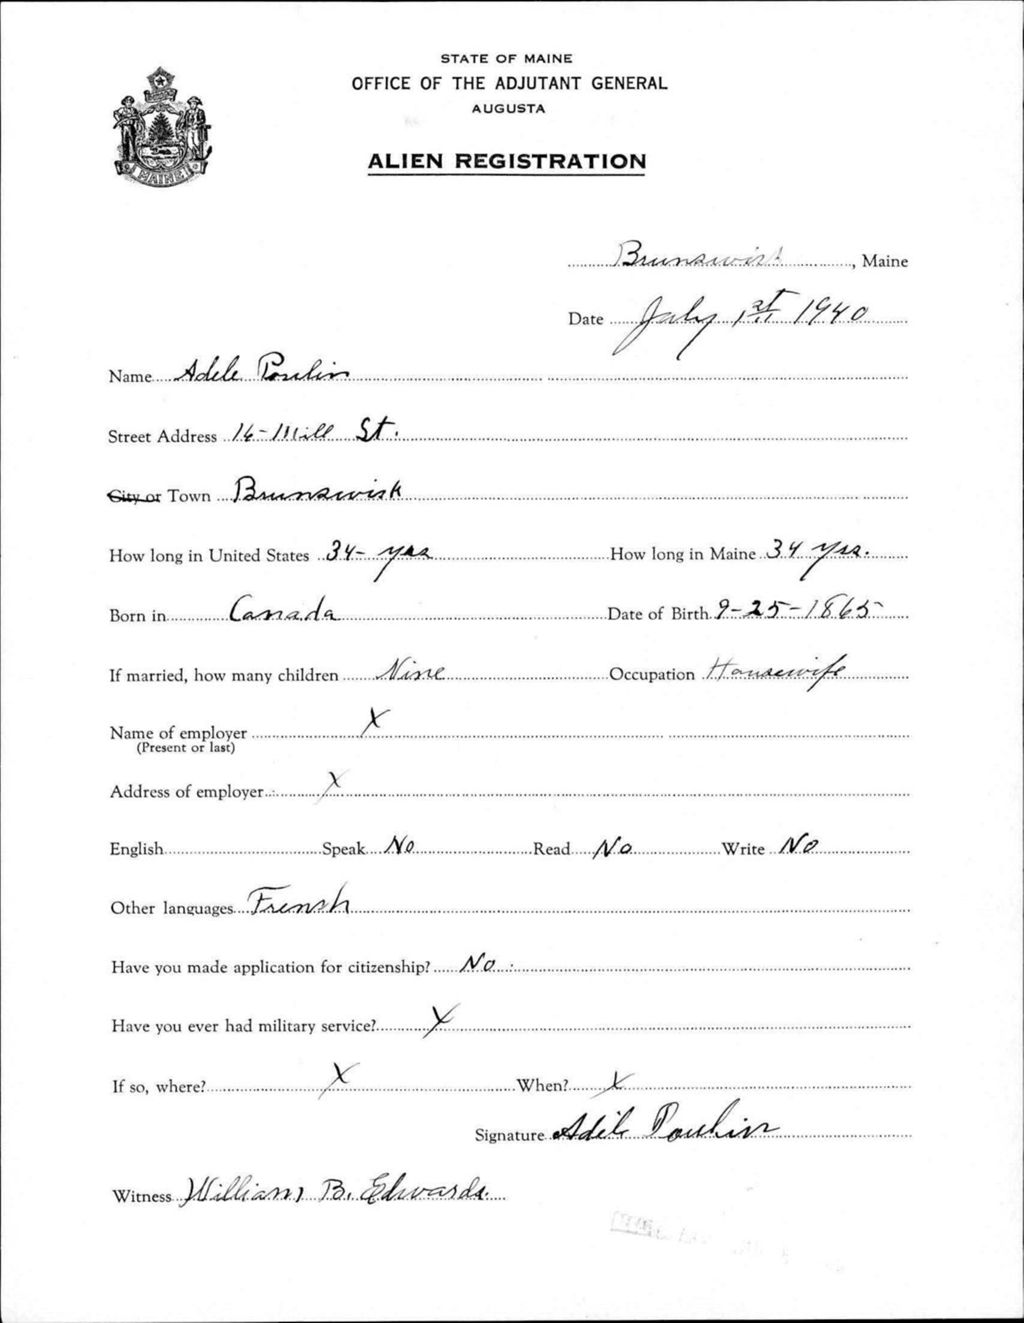 STATE OF MAINE
OFFICE OF THE ADJUTANT GENERAL
AUGUSTA
ALIEN REGISTRATION
MAINE
Brunswick, Maine
Date July 1st 1940
Name Adele Poulin
Street Address 16-Mill St.
City or Town Brunswick
How long in United States 34-yrs How long in Maine 34 yrs.
Born in Canada Date of Birth 9-25-1865
If married, how many children Nine Occupation Housewife
Name of employer X
(Present or last)
Address of employer X
English Speak No Read No Write No
Other languages French
Have you made application for citizenship? No
Have you ever had military service? X
If so, where? X When? X
Signature Adele Poulin
Witness William B. Edwards.